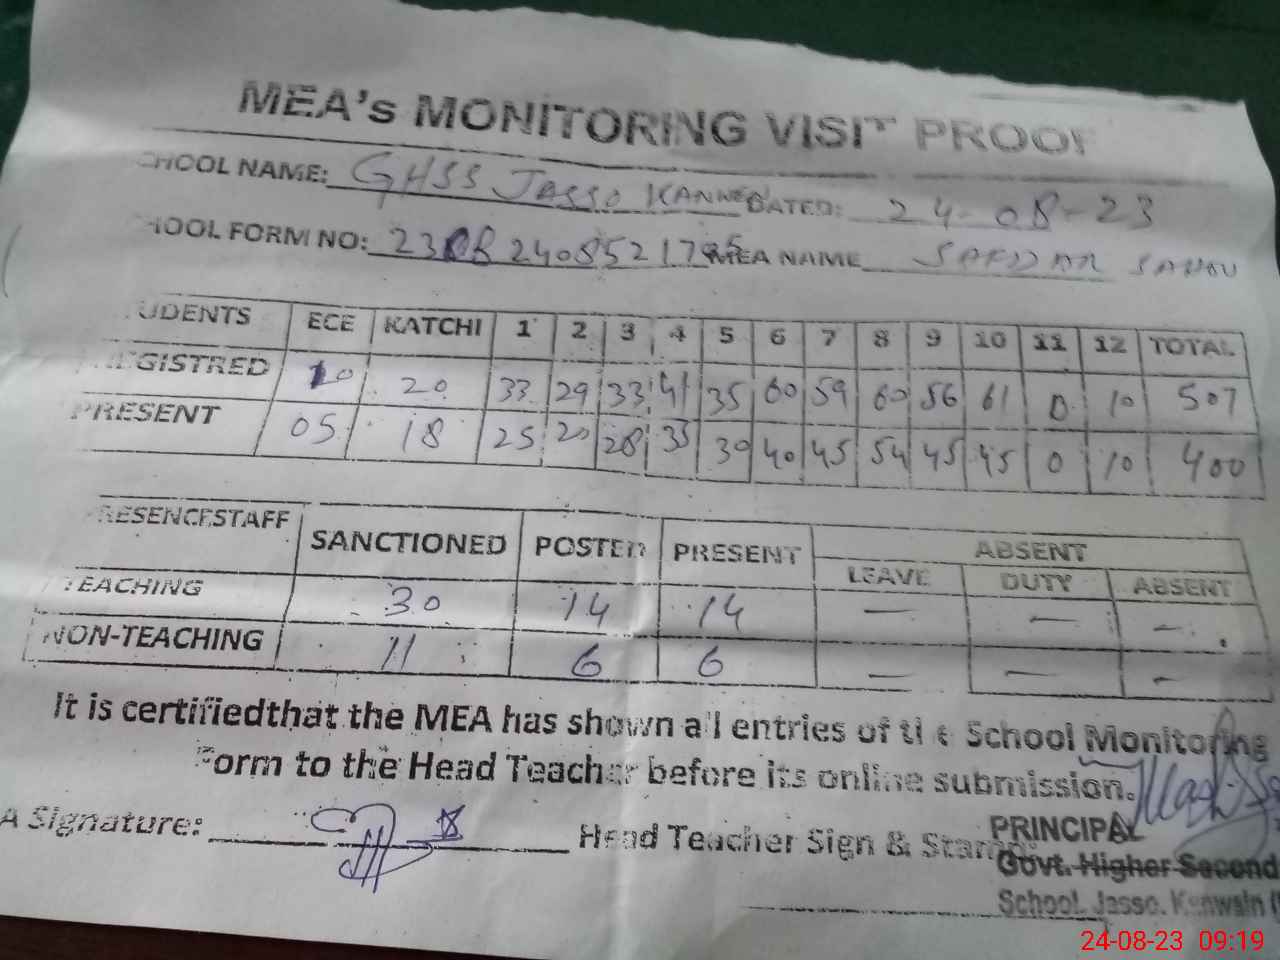 MEA's MONITORING VISIT PROOF
CHOOL NAME: GHSS JASSO KANWEN DATED: 24-08-23
HOOL FORM NO: 23 MEA NAME SAFDAR
UDENTS ECE KATCHI 1 2 3 4 5 6 7 8 9 10 11 12 TOTAL
EGISTRED 10 20 33 29 33 41 35 60 59 60 56 61 0 10 507
PRESENT 05 18 25 20 28 35 30 40 45 54 45 45 0 10 400
RESENCESTAFF SANCTIONED POSTED PRESENT ABSENT
LEAVE DUTY ABSENT
TEACHING 30 14 14 — — —
NON-TEACHING 11 6 6 — — —
It is certifiedthat the MEA has shown all entries of the School Monitoring
Form to the Head Teacher before its online submission.
A Signature: Head Teacher Sign & Stamp:
PRINCIPAL
Govt. Higher Second
School. Jasso. Kanwain (
24-08-23 09:19